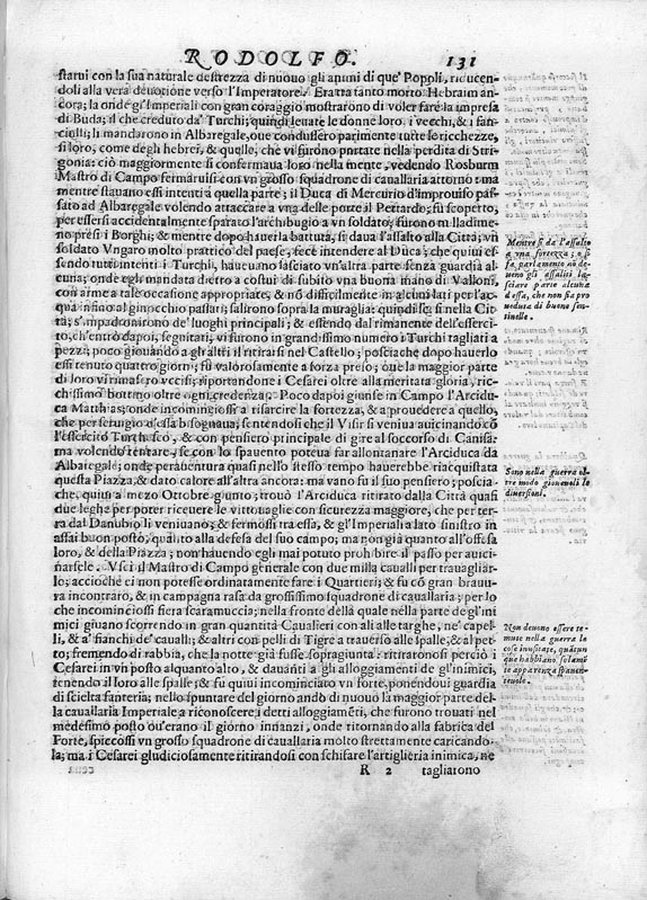 RODOLFO. 131
starui con la sua naturale destrezza di nuouo gli animi di que' Popoli, riducen-
doli alla vera deuotione verso l'Imperatore. Era tra tanto morto Hebraim an-
cora; la onde gl'Imperiali con gran coraggio mostrarono di voler fare la impresa
di Buda; il che creduto da' Turchi; quindi leuate le donne loro, i vecchi, & i fan-
ciulli; li mandarono in Albaregale, oue condussero parimente tutte le ricchezze,
sì loro, come degli hebrei, & quelle, che vi furono portate nella perdita di Stri-
gonia: ciò maggiormente si confermaua loro nella mente, vedendo Rosburm
Mastro di Campo fermaruisi con vn grosso squadrone di cauallaria attorno: ma
mentre stauano essi intenti à quella parte; il Duca di Mercurio d'improuiso pas-
sato ad Albaregale volendo attaccare a vna delle porte il Pettardo; fu scoperto,
per essersi accidentalmente sparato l'archibugio a vn soldato; furono nulladime-
no presi i Borghi; & mentre dopo hauerla battuta, si daua l'assalto alla Città; vn
soldato Vngaro molto prattico del paese, fece intendere al Duca; che quiui es-
sendo tutti intenti i Turchi, haueuano lasciato vn'altra parte senza guardia al-
cuna; onde egli mandata dietro a costui di subito vna buona mano di Valloni,
con arme a tale occasione appropriate, & nõ difficilmente in alcuni lati per l'ac-
qua infino al ginocchio passati; salirono sopra la muraglia: quindi scesi nella Cit
tà; s'impadronirono de' luoghi principali; & essendo dal rimanente dell'esserci-
to, ch'entrò dapoi, seguitati; vi furono in grandissimo numero i Turchi tagliati a
pezzi; poco giouando a gli altri il ritirarsi nel Castello; posciache dopo hauerlo
essi tenuto quattro giorni; fu valorosamente a forza preso; oue la maggior parte
di loro vi rimase vccisi; riportandone i Cesarei oltre alla meritata gloria, ric-
chissimo bottino oltre ogni credenza. Poco dapoi giunse in Campo l'Arcidu-
ca Matthias; onde incominciossi a risarcire la fortezza, & a prouedere a quello,
che per seruigio d'essa bisognaua; sentendosi che il Visir si veniua auicinando cõ
l'essercito Turchesco, & con pensiero principale di gire al soccorso di Canisa:
ma volendo tentare, se con lo spauento poteua far allontanare l'Arciduca da
Albaregale; onde perauentura quasi nello stesso tempo hauerebbe riacquistata
questa Piazza, & dato calore all'altra ancora: ma vano fu il suo pensiero; poscia-
che, quiui a mezo Ottobre giunto; trouò l'Arciduca ritirato dalla Città quasi
due leghe per poter riceuere le vittouaglie con sicurezza maggiore, che per ter-
ra dal Danubio li veniuano; & fermossi tra essa, & gl'Imperiali a lato sinistro in
assai buon posto; quãto alla defesa del suo campo; ma non già quanto all'offesa
loro, & della Piazza; non hauendo egli mai potuto prohibire il passo per auici-
narsele. Vscì il Mastro di Campo generale con due milla caualli per trauagliar-
lo; accioche ei non potesse ordinatamente fare i Quartieri; & fu cõ gran brauu-
ra incontrato, & in campagna rasa da grossissimo squadrone di cauallaria; per lo
che incominciossi fiera scaramuccia; nella fronte della quale nella parte de gl'ini
mici giuano scorrendo in gran quantità Caualieri con ali alle targhe, ne' capel-
li, & a' fianchi de' caualli; & altri con pelli di Tigre a trauerso alle spalle; & al pet-
to; fremendo di rabbia, che la notte già fusse sopragiunta: ritiraronsi perciò i
Cesarei in vn posto alquanto alto, & dauanti a gli alloggiamenti de gl'inimici,
tenendo il loro alle spalle; & fu quiui incominciato vn forte, ponendoui guardia
di scielta fanteria; nello spuntare del giorno andò di nuouo la maggior parte del-
la cauallaria Imperiale a riconoscere i detti alloggiamẽti, che furono trouati nel
medesimo posto ou'erano il giorno innanzi, onde ritornando alla fabrica del
Forte, spiccossi vn grosso squadrone di cauallaria molto strettamente caricando-
la; ma i Cesarei giudiciosamente ritirandosi con schifare l'artiglieria inimica, ne
R 2 tagliarono
Mentre si dà l'assalto
a vna fortezza; o si
fà parlamento nõ de-
uono gli assaliti la-
sciare parte alcuna
d'essa, che non sia pro
ueduta di buone sen-
tinelle.
Sono nella guerra ol-
tre modo gioueuoli le
diuersioni.
Non deuono essere te-
mute nella guerra le
cose inusitate, quãtun
que habbiano solamẽ
te apparenza spauen-
teuole.